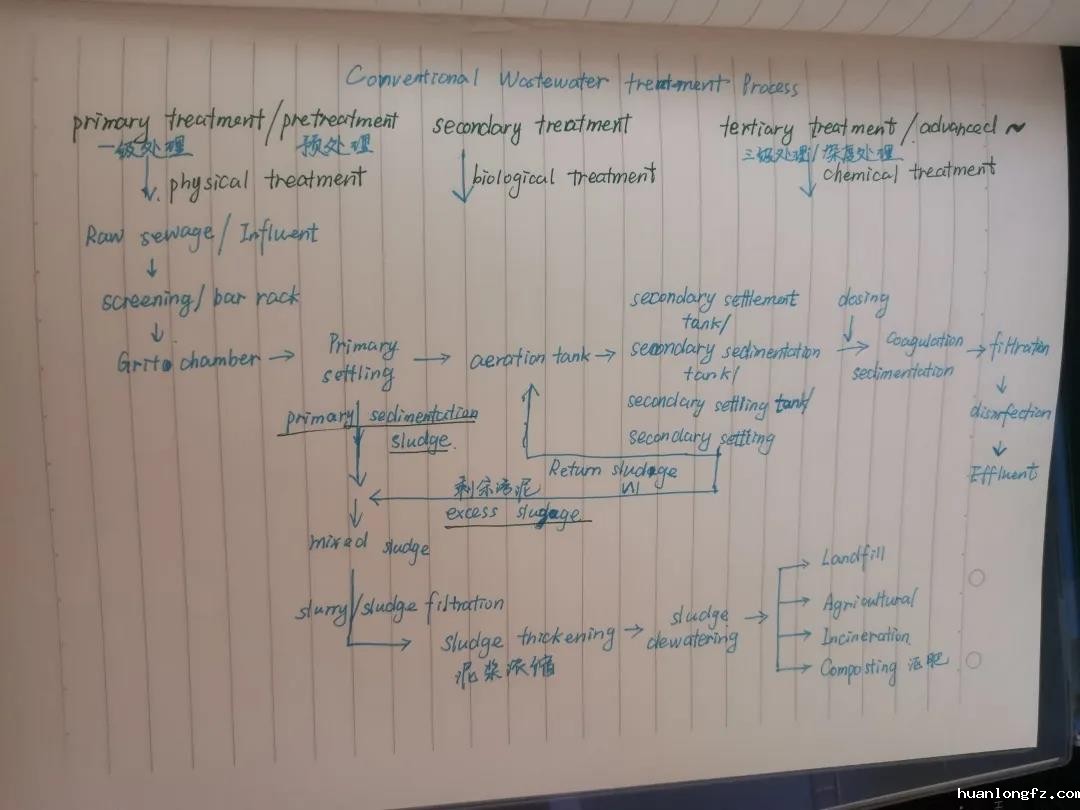 Conventional Wastewater treatment Process
primary treatment/pretreatment secondary treatment tertiary treatment/advanced ~
一级处理 预处理 三级处理/深度处理
physical treatment biological treatment chemical treatment
Raw sewage/Influent
screening/bar rack
secondary settlement tank/
dosing
Grit chamber → Primary settling → aeration tank → secondary sedimentation tank/ → coagulation sedimentation → filtration
secondary settling tank/
secondary settling
disinfection
Effluent
primary sedimentation
sludge
Return sludge
剩余污泥
excess sludge
mixed sludge
slurry/sludge filtration
sludge thickening → sludge dewatering →
泥浆浓缩
Landfill
Agricultural
Incineration
Composting 泥肥
huanlongfz.com